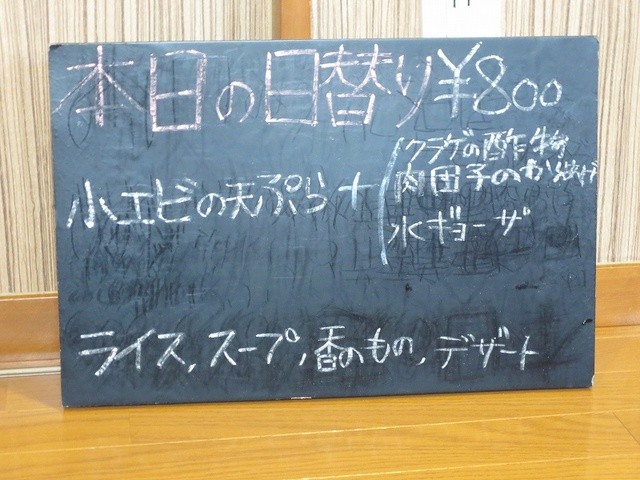 本日の日替り¥800
小エビの天ぷら+
クラゲの酢物
肉団子のから揚げ
水ギョーザ
ライス,スープ,香のもの,デザート